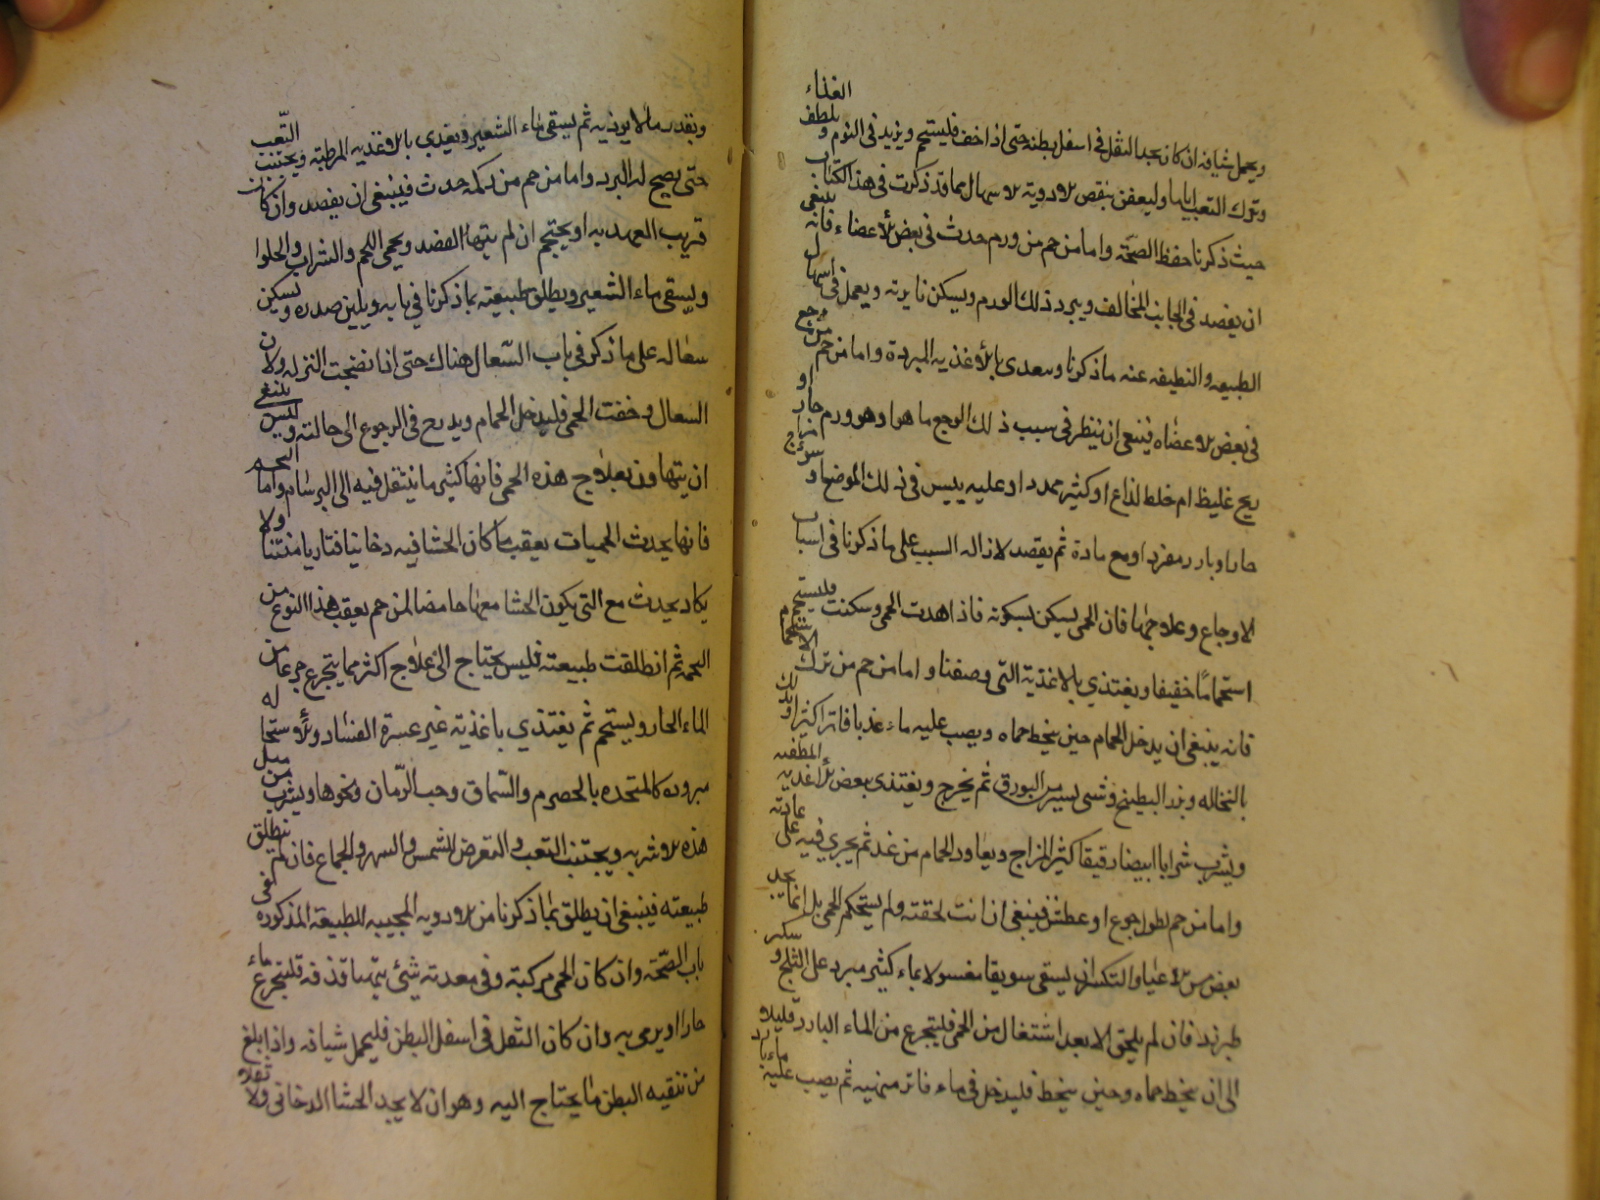 ويحمل شيافه ان كان يجد الثقل في اسفل بطنه حتى اذا خف فليستحم ويزيد في النوم ويلطف الغذاء
وترك التعب اياما وليعفن بنقص الادوية الاسهال مما قد ذكرت في هذا الكتاب
حيث ذكرنا حفظ الصحة واما من حم من ورم حدث في بعض الاعضاء فانه ينبغي
ان يفصد في الجانب المخالف ويبرد ذلك الورم ويسكن نايرته ويعمل في اسهال
الطبيعه والتطيفه عنه ما ذكرنا وبعدى بالاغذيه المبردة واما من حم من وجع
في بعض الاعضاه فينبغي ان ينظر في سبب ذلك الوجع ما هو اوهو ورم حار او
ريح غليظ ام خلط لذاع او كثير ممدد او عليه يبس في ذلك الموضع او سوء مزاج
حار او بارد مفرد او مع مادة ثم يقصد لازاله السبب على ما ذكرنا في اسباب
الاوجاع وعلاجها فان الحمى يسكن بسكونه فاذا هدت الحمى وسكنت فليستحم
استحمامًا خفيفا ويغتذي بالاغذية التي وصفنا واما من حم من ترك الاستحمام
فانه ينبغي ان يدخل الحمام حين ينحط حماه ويصب عليه ماء عذبا فاترا كثيرا ويدلك
بالنخاله وبزر البطيخ وشى يسير من البورق ثم يخرج ويغتذى ببعض الاغذيه المطفيه
ويشرب شرابا ابيضا رقيقا كثير المزاج ويعاود الحمام من غد ثم يجري فيه على عادته
واما من حم لطول جوع او عطش فينبغي ان انت لحقته ولم يستحكم الحمى بل انما يجد
بعض مس الاعيا والتكسر ان يسقى سويقا مغسولا بماء كثير مبرد على الثلج وسكر
طبرزد فان لم يلحق الا بعد اشتعال من الحمى فليتجرع من الماء البارد قليلا
الى ان ينحط حماه وحين ينحط فليدخل في ماء فاتر منهيه ثم يصب عليه ماء بارد
وبقدر ما لا يوذيه ثم يسقى ماء الشعير ويغذي بالاغذيه المرطبه ويجتنب التّعب
حتى يصح له البرء واما من حم من زكمة حدث فينبغي ان يفصد وان كان
قريب العهد به او يحتجم ان لم يتها الفصد ويحمى اللحم والشراب والحلوا
ويسقى ماء الشعير ويطلق طبيعته بما ذكرنا في بابه ويلين صدره ويسكن
سعاله على ما ذكر في باب السّعال هناك حتى اذا نضجت النزله ولان
السعال وخفت الحمى فليدخل الحمام ويدرج في الرجوع الى حالته وليس ينبغي
ان يتهاون بعلاج هذه الحمى فانها كثير ما ينتقل فيه الى البرسام واما التخمه
فانها يحدث الحميات يعقب ما كان الحشا فيه دخانيا فتاريا منتنا ولا
يكاد يحدث مع التي يكون الحشا معها حامضا لمن حم يعقب هذا النوع من
التخمه ثم انطلقت طبيعته فليس يحتاج الى علاج اكثر مما يتجرع جرعا من
الماء الحار ويستحم ثم يغتذي باغذية غير عسرة الفساد ولا استحاله
مبروده كالمتحده بالحصرم والسّماق وحب الرّمان ونحوها ويشرب من مثل
هذه الاشربه ويجتنب التعب والتعرض للشمس والسهر والجماع فان لم ينطلق
طبيعته فينبغي ان يطلق بما ذكرنا من الادويه المجيبه للطبيعة المذكوره في
باب الصّحة وان كان الحمى مركبة وفي معدته شيئ يتها قذفه فليتجرع ماء
حارا او يرمى به وان كان الثقل في اسفل البطن فليحمل شيافه واذا بلغ
من تنقيه البطن ما يحتاج اليه وهو ان لا يجد الحشا الدخاني ولا ثقلا